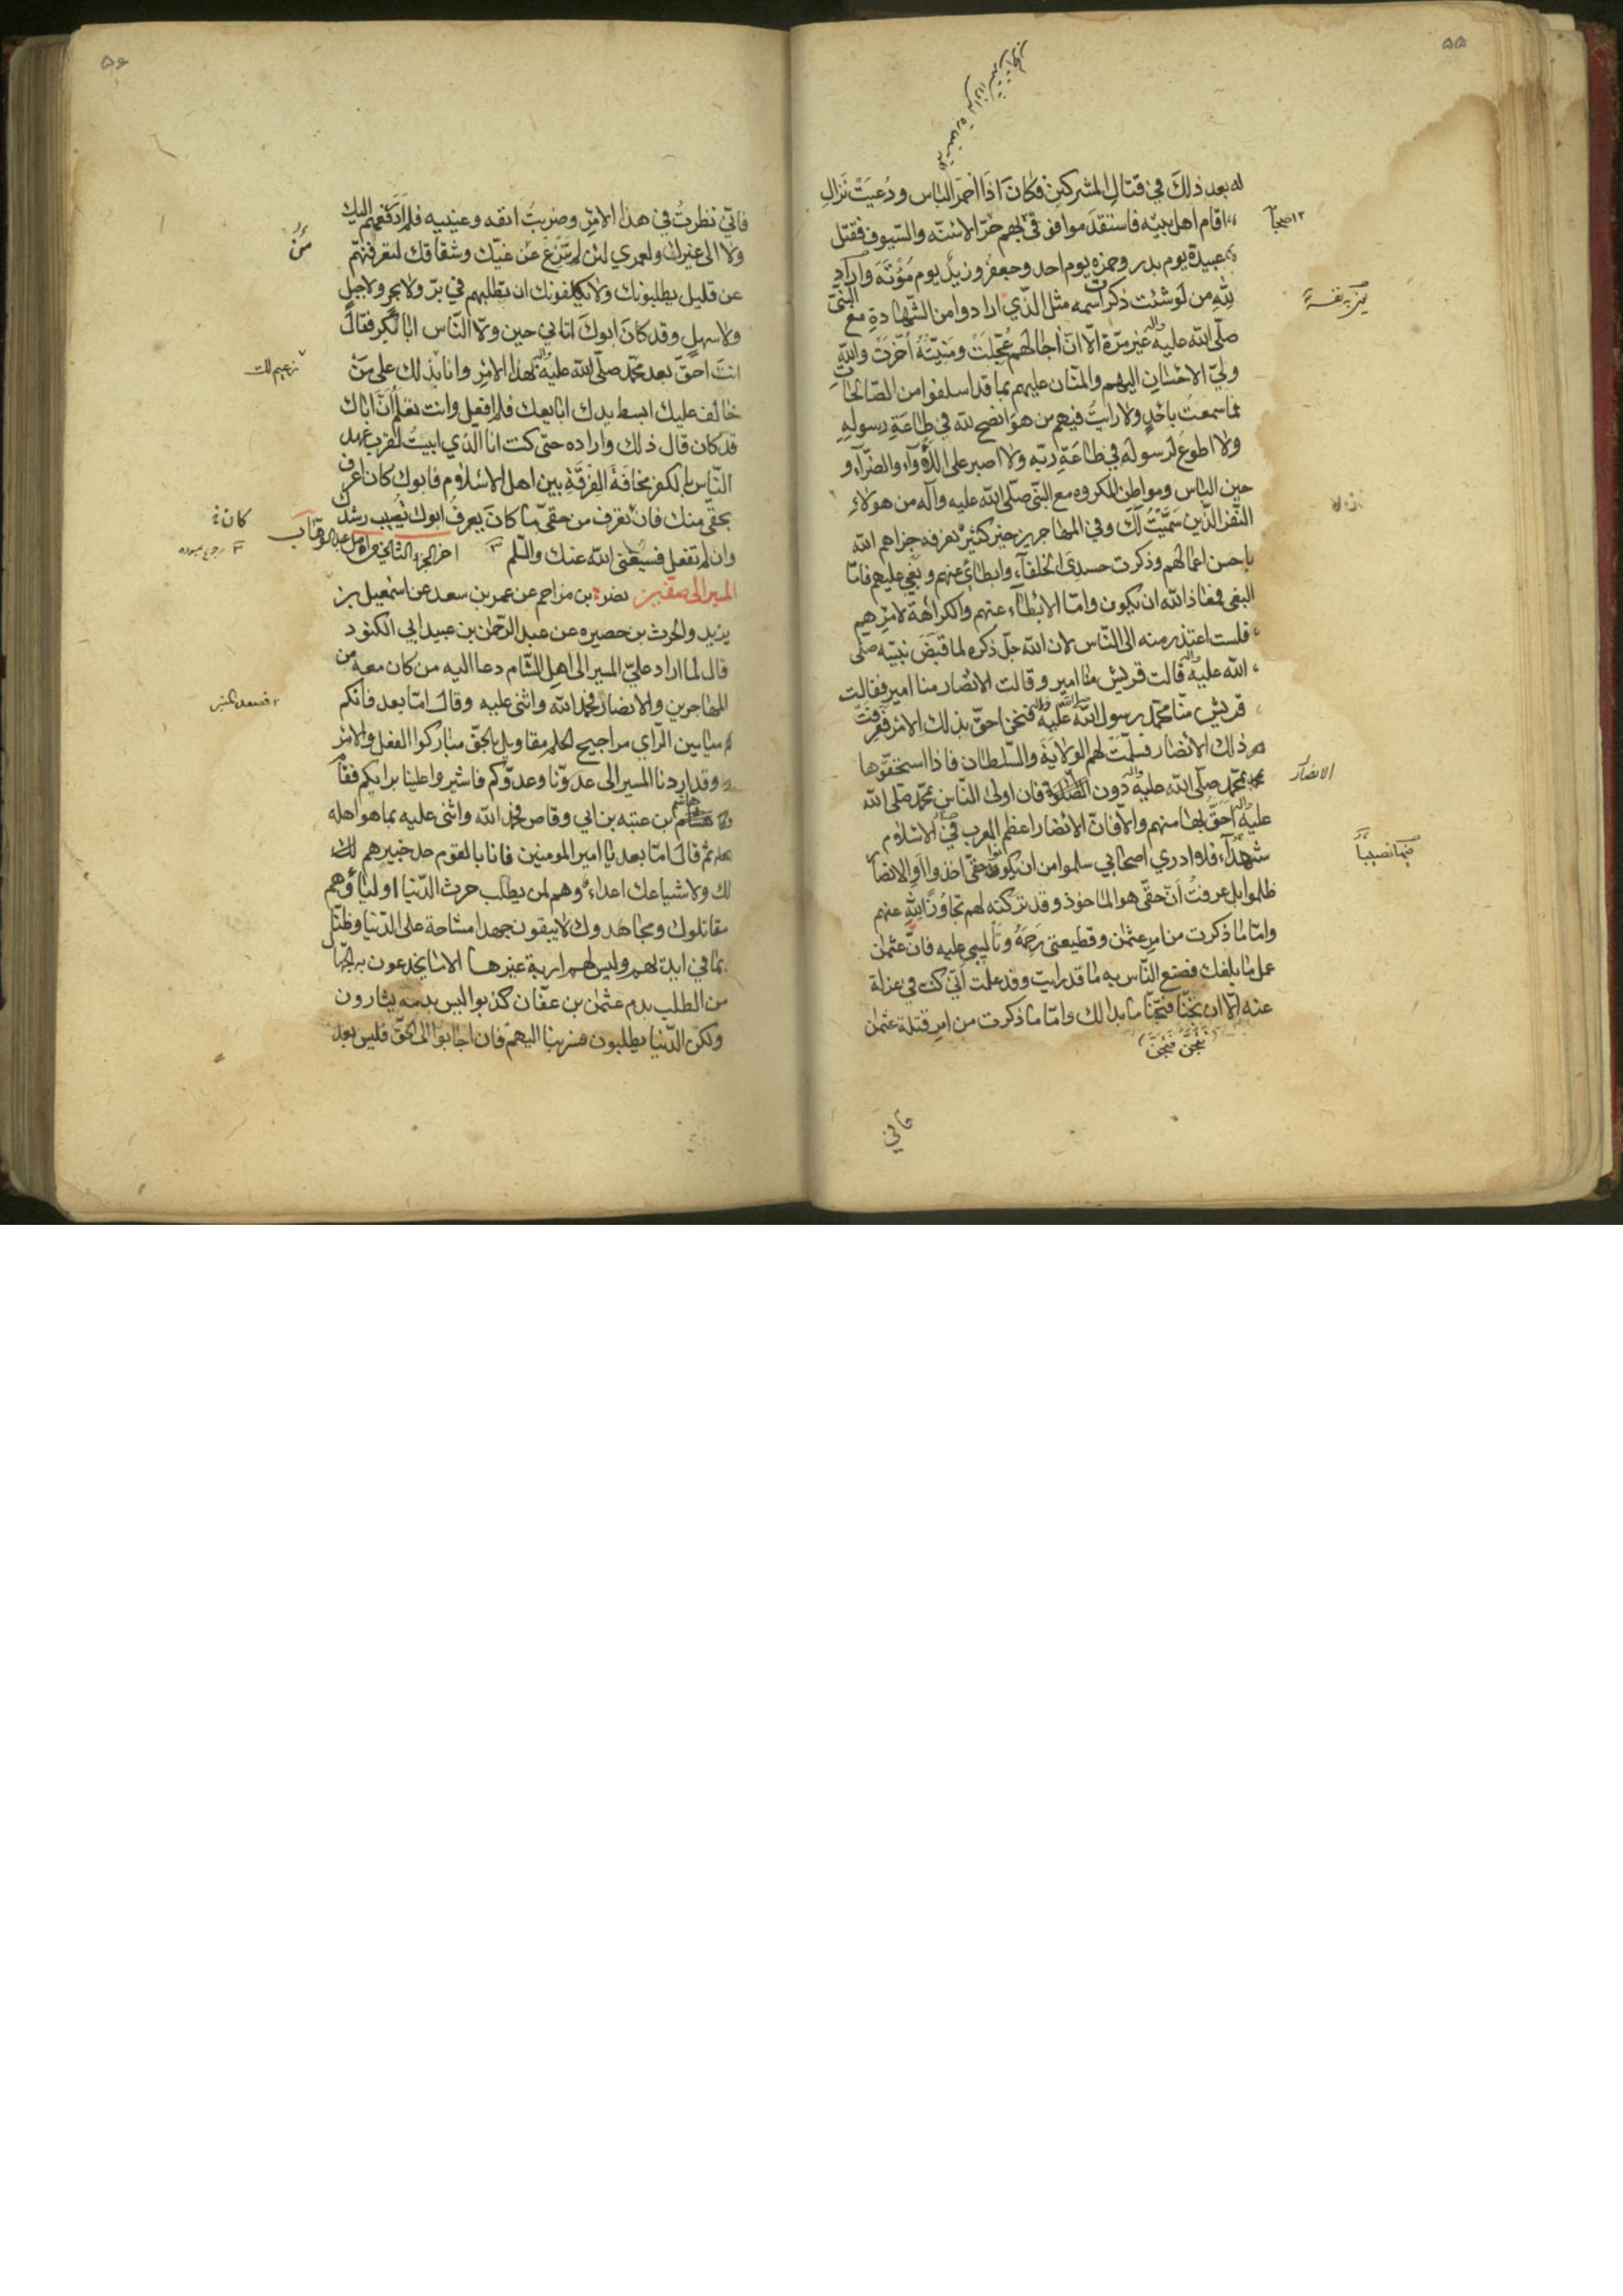 ۵۵
له بعد ذلك في قتال المشركين فكان اذا احمر الباس ودعيت نزال
اقام اهل بيته فاستقدموا فوقى بهم حر الاسنة والسيوف فقتل
عبيدة يوم بدر وحمزه يوم احد وجعفر وزيد يوم مؤتة واراد
لله من لوشئت ذكرت اسمه مثل الذي ارادوا من الشهادة مع النبي
صلى الله عليه واله غير مرة الا ان اجالهم عجلت ومنيته اخرت والله
ولي الاحسان اليهم والمنان عليهم بما قد اسلفوا من الصالحات
فما سمعت باحد ولا رايت فيهم من هو انصح لله في طاعة رسوله
ولا اطوع لرسوله في طاعة ربه ولا اصبر على اللأواء والضراء و
حين الباس ومواطن المكروه مع النبي صلى الله عليه وآله من هولاء
النفر الذين سميت لك وفي المهاجرين خير كثير نعرفه جزاهم الله
باحسن اعمالهم وذكرت حسدي الخلفاء وابطائي عنهم وبغيي عليهم فاما
البغي فمعاذ الله ان يكون واما الابطاء عنهم والكراهة لامرهم
فلست اعتذر منه الى الناس لان الله جل ذكره لما قبض نبيه صلى
الله عليه واله قالت قريش منا امير وقالت الانصار منا امير فقالت
قريش منا محمد رسول الله صلى الله عليه واله فنحن احق بذلك الامر فعرفت
ذلك الانصار فسلمت لهم الولاية والسلطان فاذا استحقوها
بمحمد صلى الله عليه واله دون الانصار فان اولى الناس بمحمد صلى الله
عليه واله احق بها منهم والا فان الانصار اعظم العرب في الاسلام
فلا ادري اصحابي سلموا من ان يكونوا حقي اخذوا او الانصار
ظلموا بل عرفت ان حقي هو الماخوذ وقد تركته لهم تجاوز الله عنهم
واما ما ذكرت من امر عثمن وقطيعتي رحمه وتاليبي عليه فان عثمن
عمل ما بلغك فصنع الناس به ما قد رايت وقد علمت اني كنت في عزلة
عنه الا ان تتجنا فتجنا ما بدا لك واما ما ذكرت من امر قتلة عثمن
تتجن فتجن
فاني
الانصار
فيها نصيبا
۵۶
فاني نظرت في هذا الامر وضربت انفه وعينيه فلم ار دفعهم اليك
ولا الى غيرك ولعمري لئن لم تنزع عن غيك وشقاقك لتعرفنهم
عن قليل يطلبونك ولا يكلفونك ان تطلبهم في بر ولا بحر ولا جبل
ولا سهل وقد كان ابوك اتاني حين ولى الناس ابا بكر فقال
انت احق بعد محمد صلى الله عليه واله بهذا الامر وانا بذلك على من
خالف عليك ابسط يدك ابايعك فلم افعل وانت تعلم ان اباك
قد كان قال ذلك واراده حتى كنت انا الذي ابيت لقرب عهد
الناس بالكفر مخافة الفرقة بين اهل الاسلام فابوك كان اعرف
بحقي منك فان تعرف من حقي ما كان يعرف ابوك تصب رشدك
وان لم تفعل فسيغني الله عنك والسلم اخر الجزء الثاني من اصل عبد الوهاب
المسير الى صفين نصر بن مزاحم عن عمر بن سعد عن اسمعيل بن
يزيد والحرث بن حصيره عن عبد الرحمن بن عبيد ابي الكنود
قال لما اراد علي المسير الى اهل الشام دعا اليه من كان معه من
المهاجرين والانصار فحمد الله واثنى عليه وقال اما بعد فانكم
ميامين الراي مراجيح الحلم مقاويل بالحق مباركوا الفعل والامر
وقد اردنا المسير الى عدونا وعدوكم فاشيروا علينا برايكم فقام
هاشم بن عتبه بن ابي وقاص فحمد الله واثنى عليه بما هو اهله
ثم قال اما بعد يا امير المومنين فانا بالقوم جد خبير هم لك
ولاشياعك اعداء وهم لمن يطلب حرث الدنيا اولياء وهم
مقاتلوك ومجاهدوك لا يبقون جهدا مشاحة على الدنيا وضنا
بما في ايديهم وليس لهم اربة غيرها الا ما يخدعون به الجهال
من الطلب بدم عثمن بن عفان كذبوا ليس بدمه يثارون
ولكن الدنيا يطلبون فسر بنا اليهم فان اجابوا الى الحق فليس بعد
زعيم لك
كان